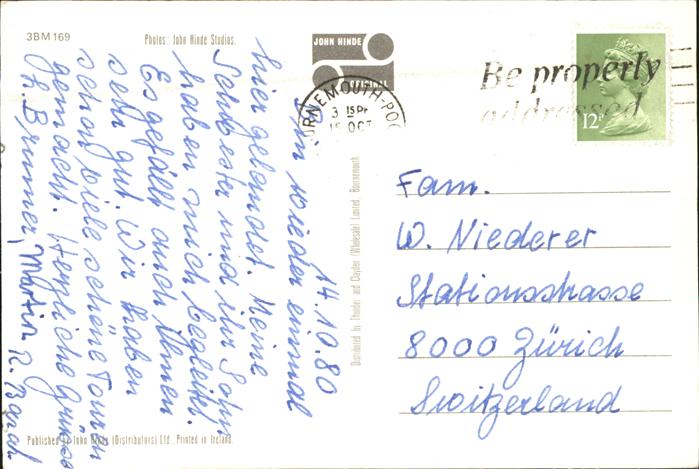 3BM 169
Photos: John Hinde Studios.
JOHN HINDE
ORIGINAL
BOURNEMOUTH-POO
3 15 PM
15 OCT
Be properly
addressed
12
14.10.80
Bin wieder einmal
hier gelandet. Meine
Schwester und ihr Sohn
haben mich begleitet.
Es gefällt auch Ihnen
sehr gut. Wir haben
schon viele schöne Touren
gemacht. Herzliche Grüsse
Brunner, Martin R.
Distributed by Thunder and Clayden (Wholesale) Limited, Bournemouth
Fam.
W. Niederer
Stationsstrasse
8000 Zürich
Switzerland
Published by John Hinde (Distributors) Ltd. Printed in Ireland.